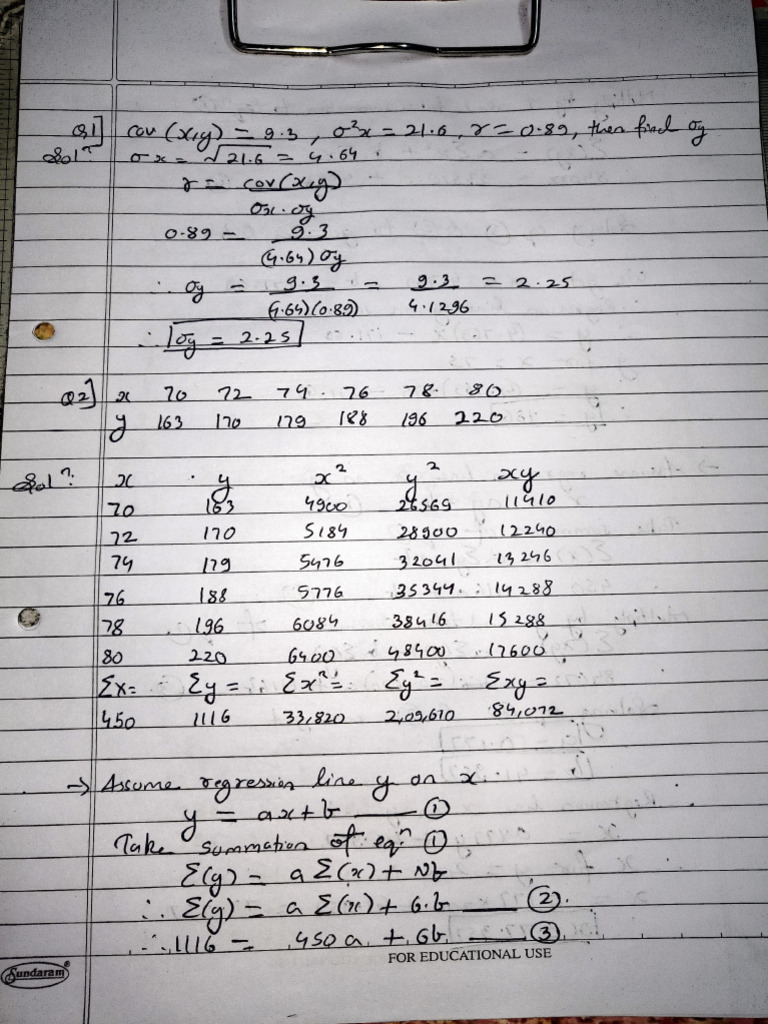 Q1] cov (x,y) = 9.3 , σ²x = 21.6 , r = 0.89, then find σy
Solⁿ: σx = √21.6 = 4.64 .
r = cov(x,y)
σx. σy
0.89 = 9.3
(4.64) σy
∴ σy = 9.3 = 9.3 = 2.25
(4.64)(0.89) 4.1296
∴ σy = 2.25
Q2] x 70 72 74 . 76 78. 80
y 163 170 179 188 196 220
Solⁿ: x . y x² y² xy
70 163 4900 26569 11410
72 170 5184 28900 12240
74 179 5476 32041 13246
76 188 5776 35344 14288
78 196 6084 38416 15288
80 220 6400 48400 17600
Σx= Σy = Σx²= Σy² = Σxy =
450 1116 33,820 2,09,670 84,072
→ Assume regression line y on x.
y = ax + b ——— ①
Take summation of eqⁿ ①
Σ(y) = a Σ(x) + Nb
∴ Σ(y) = a Σ(x) + 6.b ——— ②.
∴ 1116 = 450a + 6b ——— ③.
FOR EDUCATIONAL USE
Sundaram®